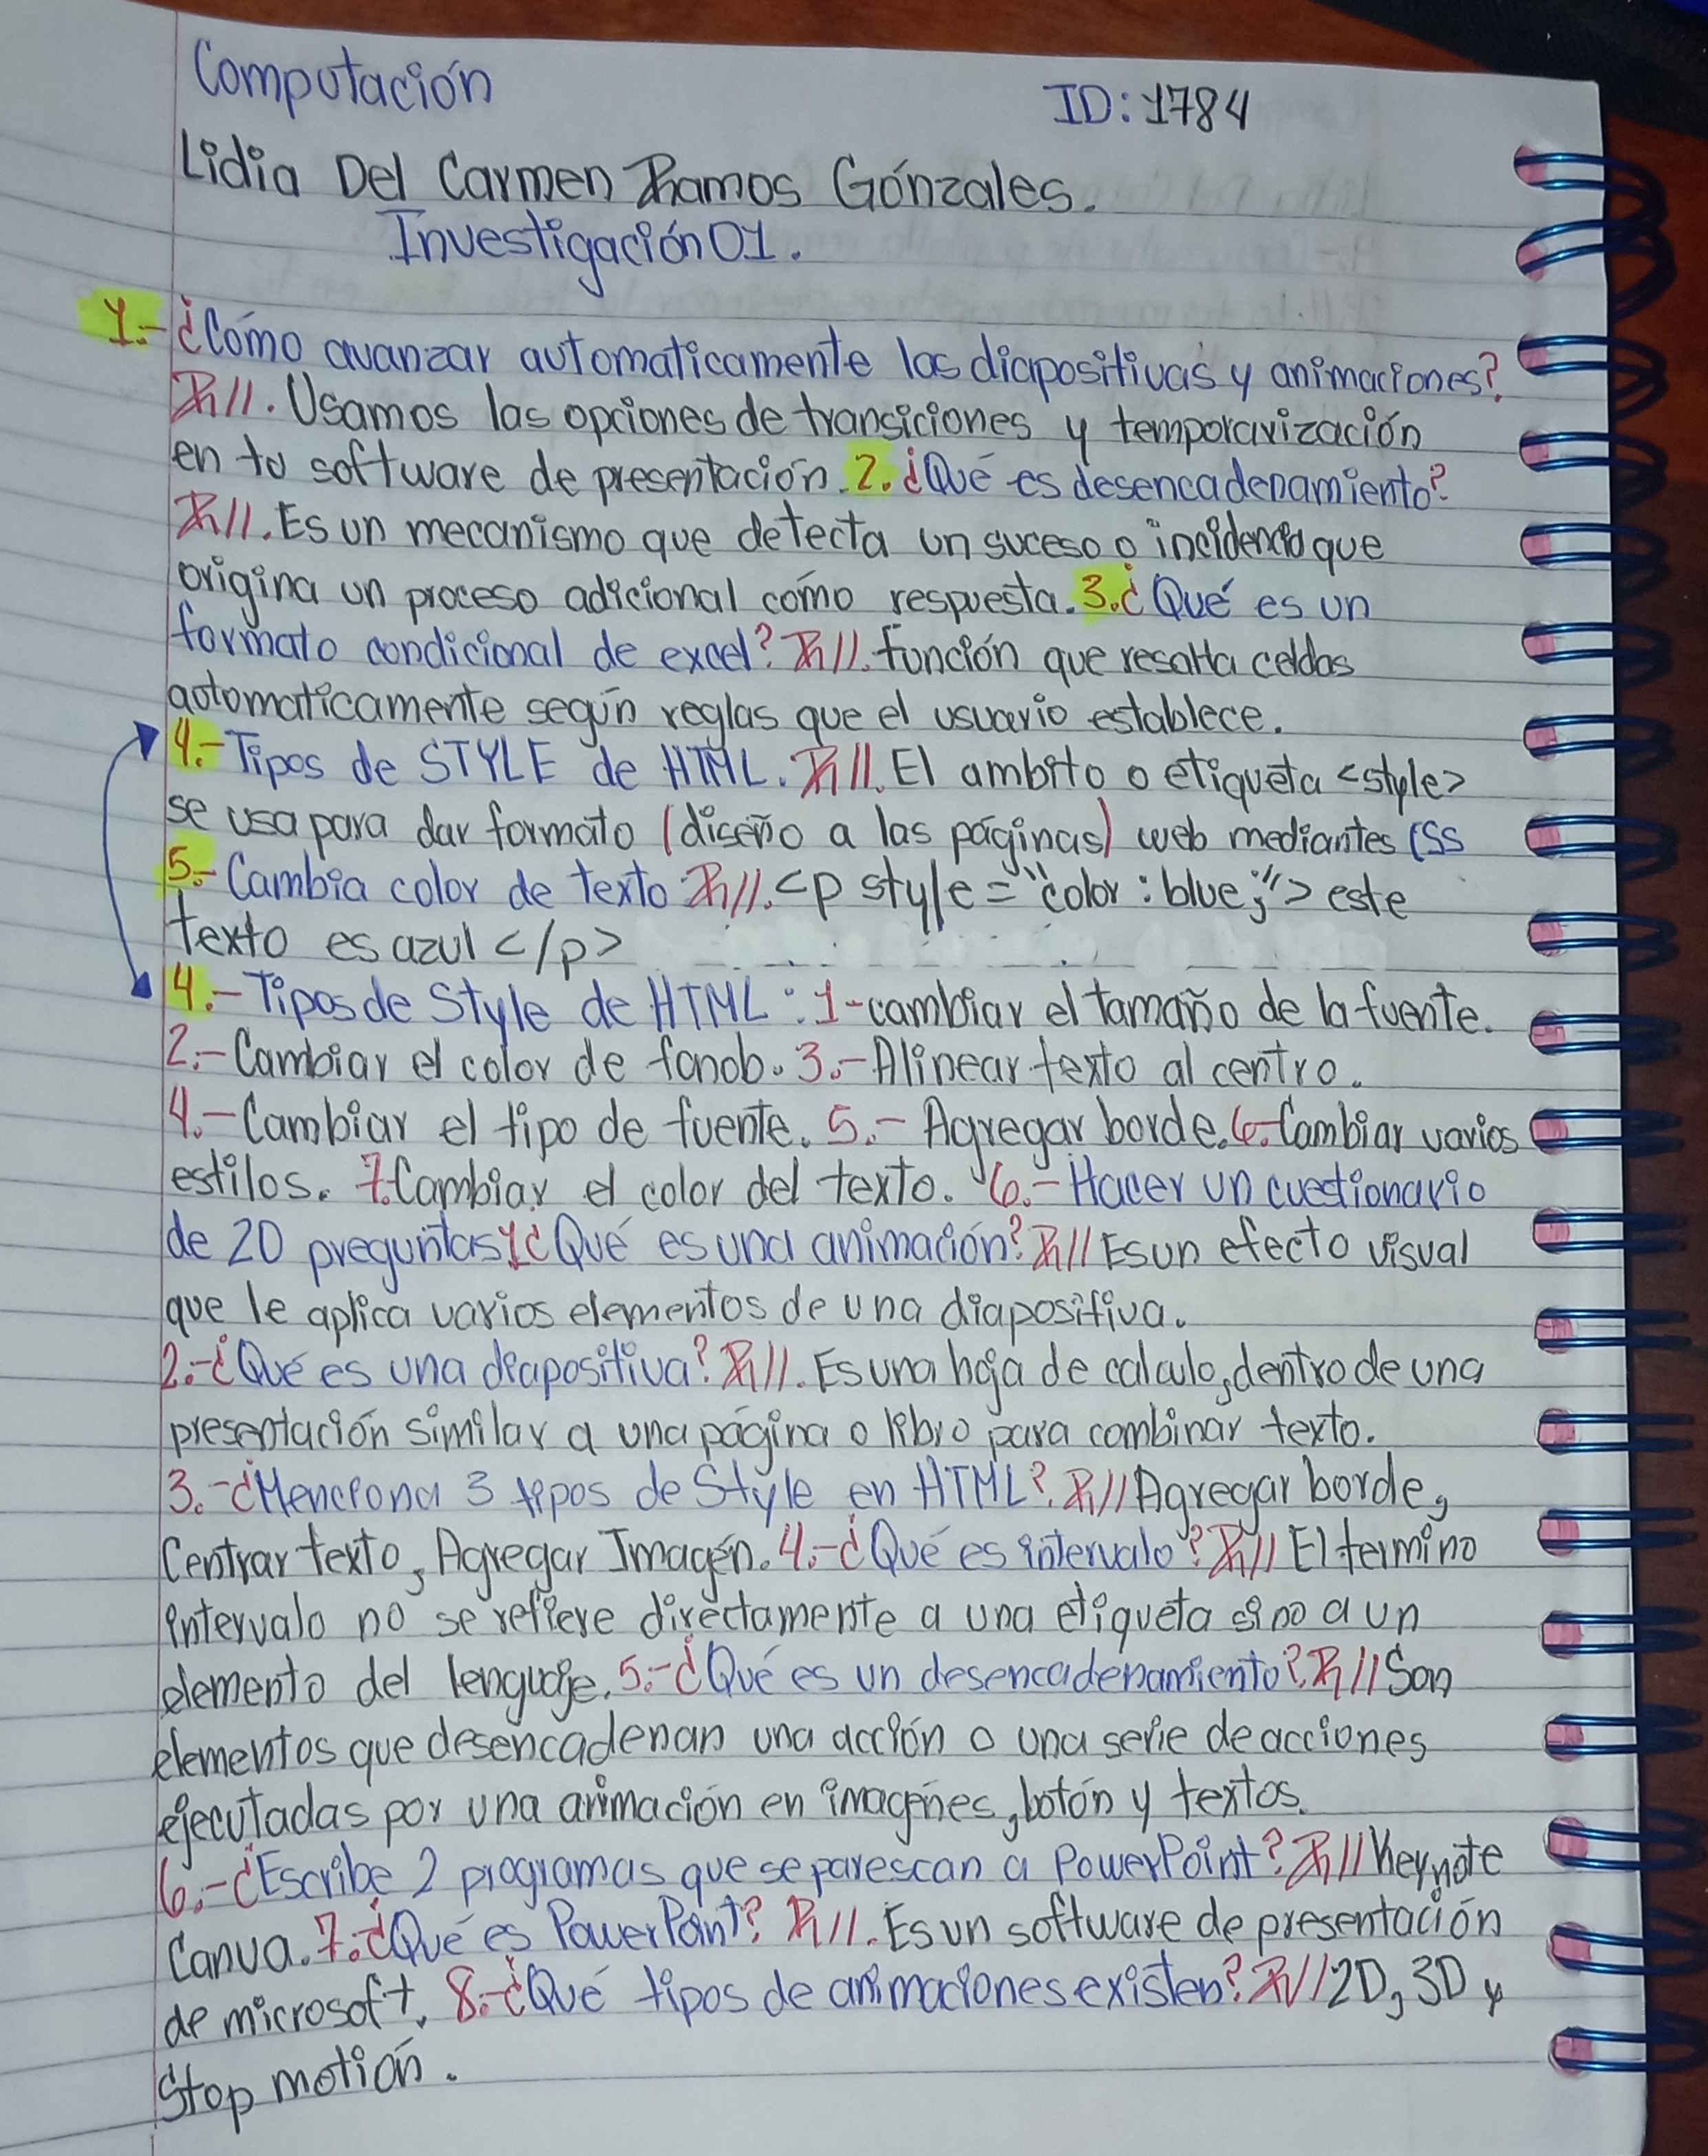 Computación
ID: 1784
Lidia Del Carmen Ramos Gónzales.
Investigación 01.
1.- ¿Cómo avanzar automaticamente las diapositivas y animaciones?
R//. Usamos las opciones de transiciones y temporavización
en tu software de presentación. 2. ¿Qué es desencadenamiento?
R//. Es un mecanismo que detecta un suceso o incidencia que
origina un proceso adicional cómo respuesta. 3. ¿Qué es un
formato condicional de excel? R//. función que resalta celdas
automaticamente según reglas que el usuario establece.
4.- Tipos de STYLE de HTML. R//. El ambito o etiqueta <style>
se usa para dar formato (diseño a las páginas) web mediantes CSS
5.- Cambia color de texto R//. <p style="color: blue;"> este
texto es azul </p>
4.- Tipos de Style de HTML: 1- cambiar el tamaño de la fuente.
2.- Cambiar el color de fondo. 3.- Alinear texto al centro.
4.- Cambiar el tipo de fuente. 5.- Agregar borde. 6. Cambiar varios
estilos. 7. Cambiar el color del texto. 6.- Hacer un cuestionario
de 20 preguntas 1 ¿Qué es una animación? R// Es un efecto visual
que le aplica varios elementos de una diapositiva.
2.- ¿Qué es una diapositiva? R//. Es una hoja de calculo, dentro de una
presentación similar a una página o libro para combinar texto.
3.- ¿Menciona 3 tipos de Style en HTML? R// Agregar borde,
Centrar texto, Agregar Imagén. 4.- ¿Qué es intervalo? R// El termino
intervalo no se refiere directamente a una etiqueta sino a un
elemento del lenguaje. 5.- ¿Qué es un desencadenamiento? R// Son
elementos que desencadenan una acción o una serie de acciones
ejecutadas por una animación en imagénes, botón y textos.
6.- ¿Escribe 2 programas que se parescan a PowerPoint? R// Keynote
Canva. 7. ¿Qué es PowerPoint? R//. Es un software de presentación
de microsoft. 8.- ¿Qué tipos de animaciones existen? R// 2D, 3D y
Stop motion.